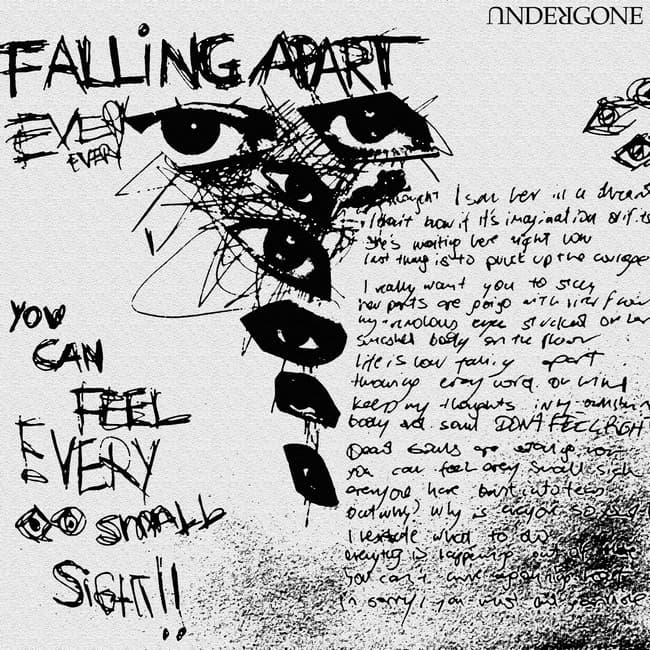 UNDERGONE
FALLING APART
EVERY
EVERY
thought I saw her in a dream
I don't know if it's imagination or if it's
she's waiting here right now
last thing is to pluck up the courage
I really want you to stay
her parts are going with
my eyes stucked on her
smashed body on the floor
life is now falling apart
throwing every word on wind
keep my thoughts in my
body and soul DON'T FEEL RIGHT
Dead souls are now
you can feel every small sigh
everyone have burst into tears
but why? why is everyone so
I hesitate what to do
everything is happening out of
You can't
I'm sorry, you must
YOU
CAN
FEEL
EVERY
SMALL
SIGHT!!